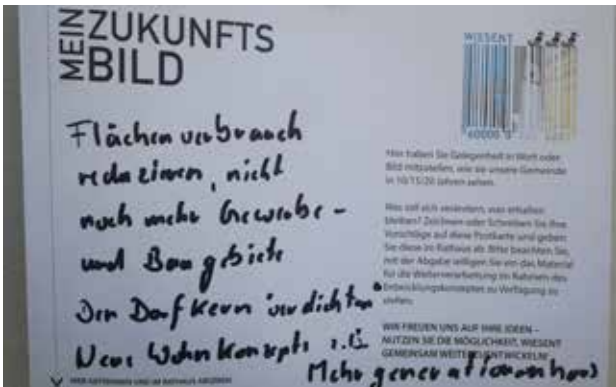 MEIN
ZUKUNFTS
BILD
WIESENT
Flächenverbrauch
reduzieren, nicht
noch mehr Gewerbe-
und Baugebiete
Den Dorfkern verdichten
Neue Wohnkonzepte z.B.
Mehrgenerationenhaus
Hier haben Sie Gelegenheit in Wort oder
Bild mitzuteilen, wie sie unsere Gemeinde
in 10/15/20 Jahren sehen.
Was soll sich verändern, was erhalten
bleiben? Zeichnen oder Schreiben Sie Ihre
Vorschläge auf diese Postkarte und geben
Sie diese im Rathaus ab. Bitte beachten Sie,
mit der Abgabe willigen Sie ein das Material
für die Weiterverarbeitung im Rahmen des
Entwicklungskonzeptes zu Verfügung zu
stellen.
WIR FREUEN UNS AUF IHRE IDEEN –
NUTZEN SIE DIE MÖGLICHKEIT, WIESENT
GEMEINSAM WEITERZUENTWICKELN!
HIER ABTRENNEN UND IM RATHAUS ABGEBEN